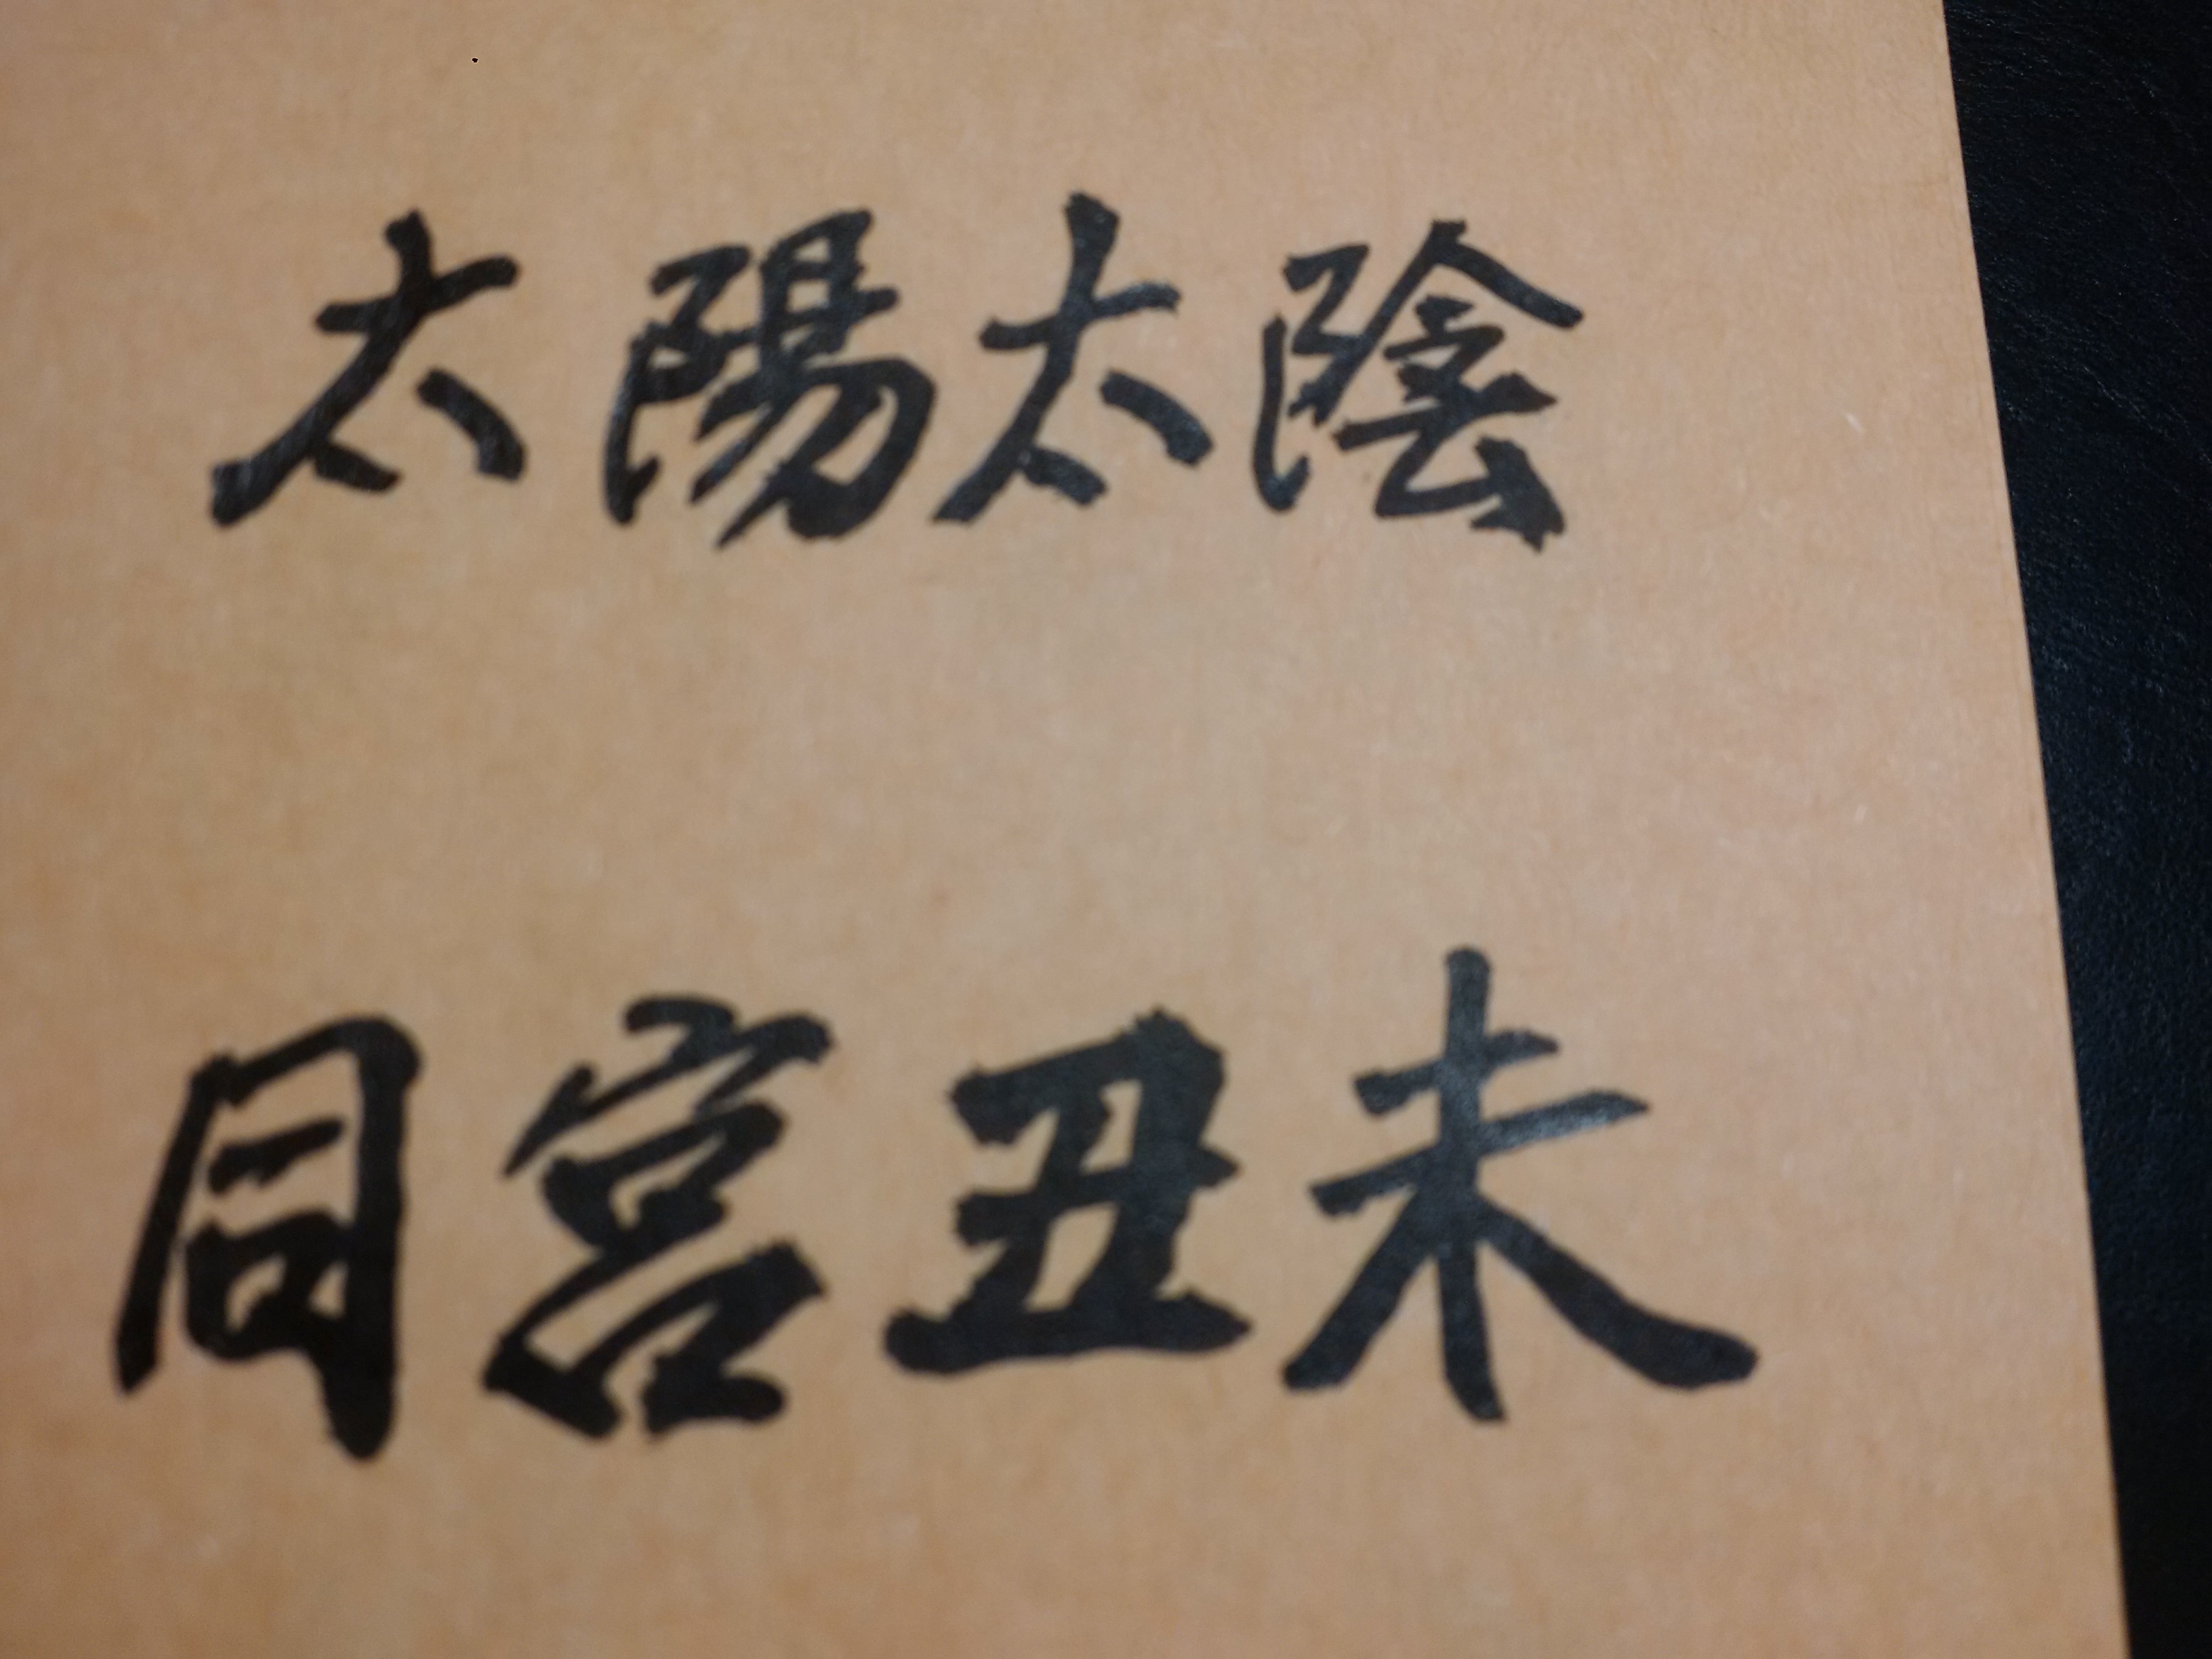 太陽太陰
同宮丑未